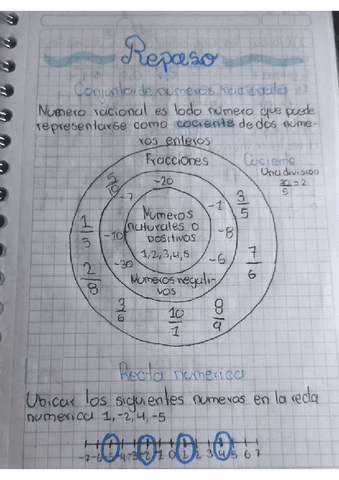 Repaso
Conjunto de numeros racionales
Numero racional es todo número que puede
representarse como cociente de dos núme-
ros enteros
Fracciones
Cociente
Una división
10/5 = 2
5/10
-20
-7
-1
3/5
1/5
Números
naturales o
positivos
1,2,3,4,5
-10
-8
-30
-6
7/6
2/8
Numeros negati-
vos
3/6
10/1
8/9
Recta numerica
Ubicar los siguientes numeros en la recta
numerica 1,-2,4,-5
-7 -6 -5 -4 -3 -2 -1 0 1 2 3 4 5 6 7